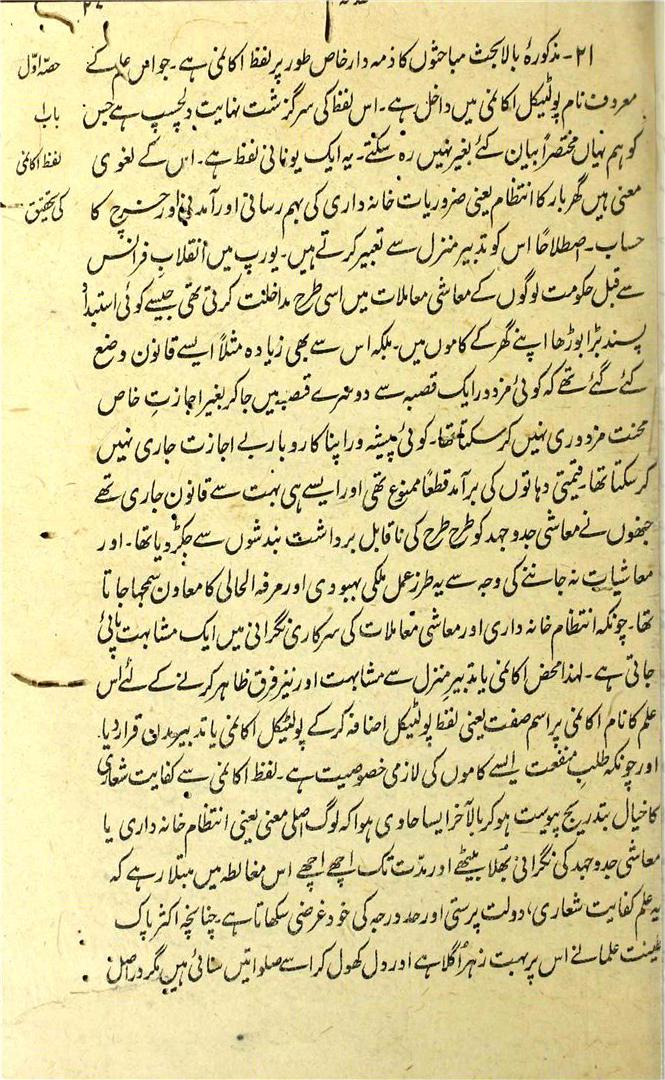 ۲۱۔ مذکورۂ بالا بحث مباحثوں کا ذمہ دار خاص طور پر لفظ اکانمی ہے۔ جو اس علم کے
حصہ اوّل
معروف نام پولٹیکل اکانمی میں داخل ہے۔ اس لفظ کی سرگزشت نہایت دلچسپ ہے جس
باب ۱
کو ہم یہاں مختصراً بیان کئے بغیر نہیں رہ سکتے۔ یہ ایک یونانی لفظ ہے۔ اس کے لغوی
لفظ اکانمی
معنی ہیں گھر بار کا انتظام یعنی ضروریات خانہ داری کی بہم رسانی اور آمدنی اور خرچ کا
کی تحقیق
حساب۔ اصطلاحاً اس کو تدبیر منزل سے تعبیر کرتے ہیں۔ یورپ میں انقلاب فرانس
سے قبل حکومت لوگوں کے معاشی معاملات میں اسی طرح مداخلت کرتی تھی جیسے کوئی استبداد
پسند بڑا بوڑھا اپنے گھر کے کاموں میں۔ بلکہ اس سے بھی زیادہ مثلاً ایسے قانون وضع
کئے گئے تھے کہ کوئی مزدور ایک قصبہ سے دوسرے قصبہ میں جا کر بغیر اجازتِ خاص
محنت مزدوری نہیں کر سکتا تھا۔ کوئی پیشہ ور اپنا کاروبار بے اجازت جاری نہیں
کر سکتا تھا۔ قیمتی دہاتوں کی برآمد قطعاً ممنوع تھی اور ایسے ہی بہت سے قانون جاری تھے
جنھوں نے معاشی جدوجہد کو طرح طرح کی ناقابل برداشت بندشوں سے جکڑ دیا تھا۔ اور
معاشیات نہ جاننے کی وجہ سے یہ طرز عمل ملکی بہبودی اور مرفہ الحالی کا معاون سمجہا جاتا
تھا۔ چونکہ انتظام خانہ داری اور معاشی معاملات کی سرکاری نگرانی میں ایک مشابہت پائی
جاتی ہے۔ لہذا محض اکانمی یا تدبیر منزل سے مشابہت اور نیز فرق ظاہر کرنے کے لئے اس
علم کا نام اکانمی پر اسم صفت یعنی لفظ پولٹیکل اضافہ کر کے پولٹیکل اکانمی یا تدبیر مدن قرار دیا۔
اور چونکہ طلب منفعت ایسے کاموں کی لازمی خصوصیت ہے۔ لفظ اکانمی سے کفایت شعاری
کا خیال بتدریج پیوست ہو کر بالآخر ایسا حاوی ہوا کہ لوگ اصلی معنی یعنی انتظام خانہ داری یا
معاشی جدوجہد کی نگرانی بھلا بیٹھے اور مدّت تک اچھے اچھے اس مغالطہ میں مبتلا رہے کہ
یہ علم کفایت شعاری، دولت پرستی اور حد درجہ کی خود غرضی سکھاتا ہے چنانچہ اکثر پاک
طینت علما نے اس پر بہت زہر اُگلا ہے اور دل کھول کر اسے صلواتیں سنائی ہیں مگر دراصل